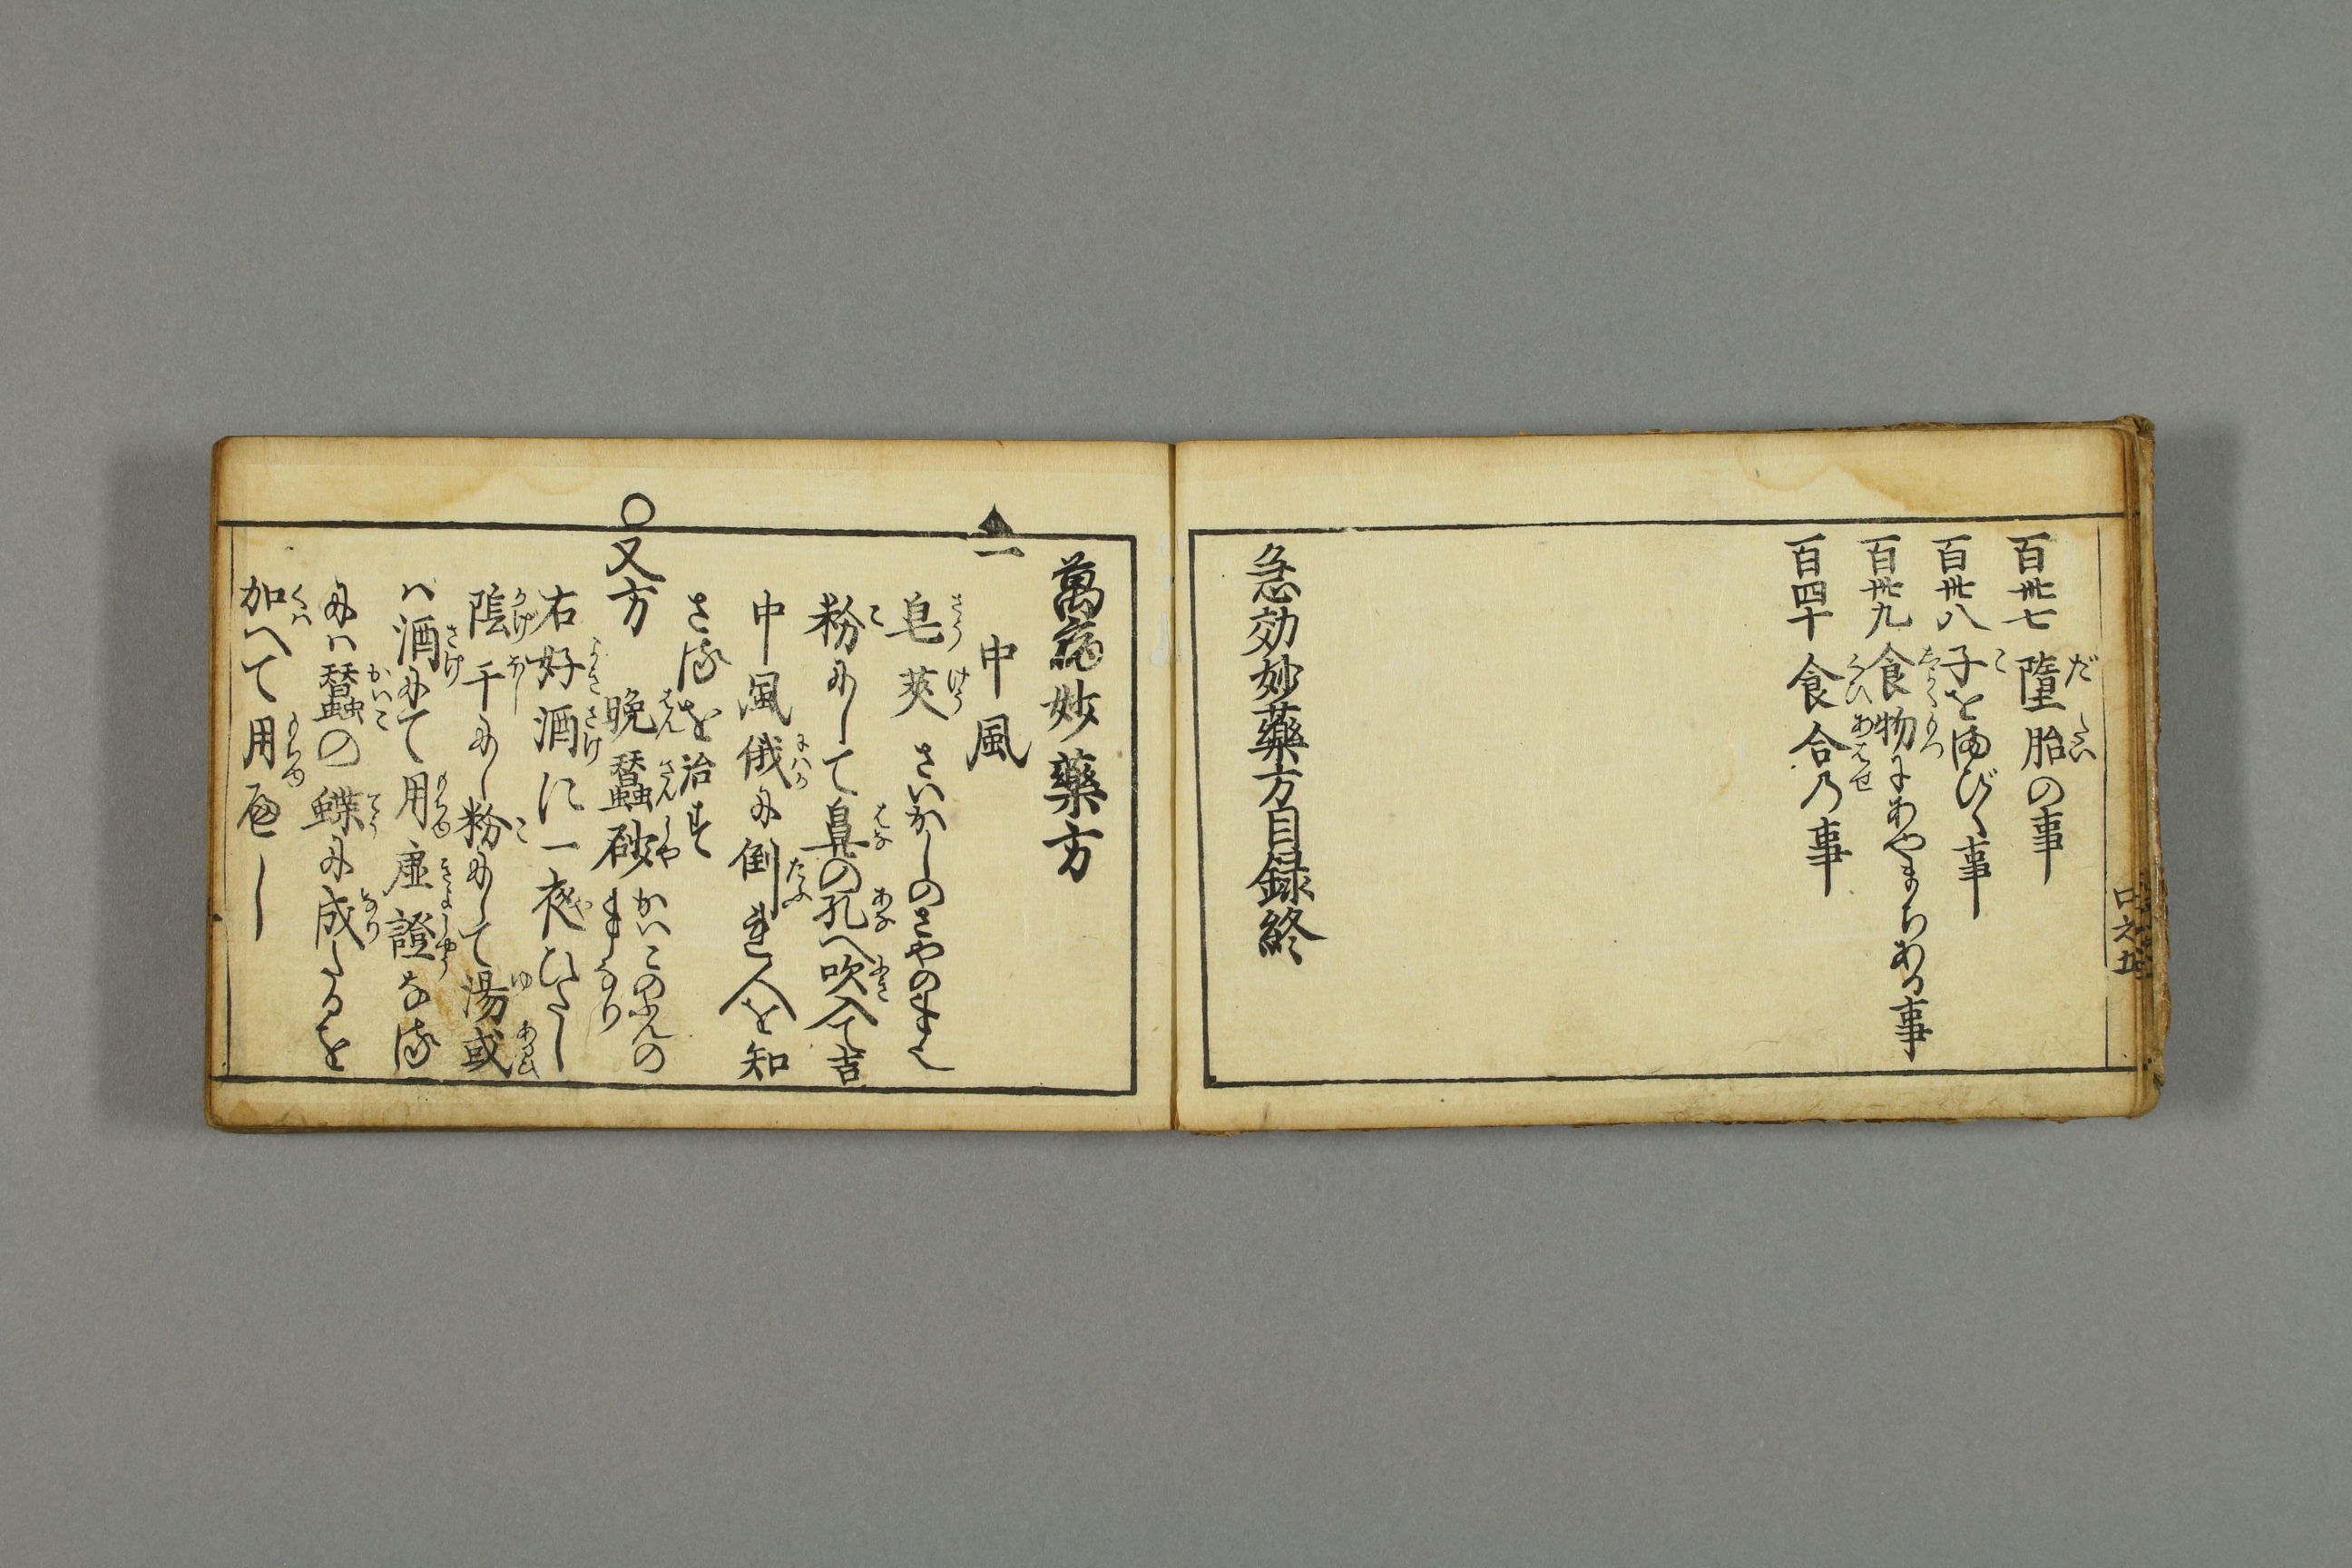 百卅七 墮胎の事
百卅八 子をほびく事
百卅九 食物にあやまちある事
百四十 食合乃事
急効妙藥方目録終
口之五
萬病妙藥方
一 中風
皂莢 さいかしのさやの事也
粉にして鼻の孔へ吹入て吉
中風俄に倒れ人を知
さるを治す
〇又方 晩蠶砂 かいこのふんの事なり
右好酒に一夜ひたし
陰干にし粉にして湯或
ハ酒にて用虚證なる
にハ蠶の蝶に成たるを
加へて用べし